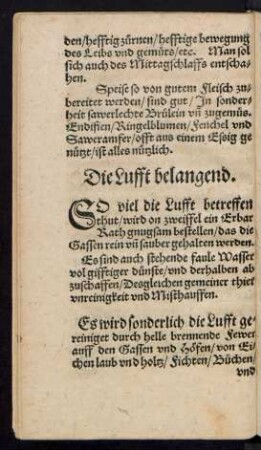 den/hefftig zürnen/hefftige bewegung
des Leibs vnd gemüts/etc. Man sol
sich auch des Mittagschlaffs entscha⸗
hen.
Speise so von gutem Fleisch zu⸗
bereitet werden/sind gut/In sonder⸗
heit sawerlechte Brülein vñ zugemüs.
Endifien/Ringelblumen/Fenchel vnd
Saweramfer/offt aus einem Essig ge
nützt/ist alles nützlich.
Die Lufft belangend.
SO viel die Lufft betreffen
thut/wird on zweiffel ein Erbar
Rath gnugsam bestellen/das die
Gassen rein vñ sauber gehalten werden.
Es sind auch stehende faule Wasser
vol gifftiger dünste/vnd derhalben ab
zuschaffen/Desgleichen gemeiner thier
vnreinigkeit vnd Misthauffen.
Es wird sonderlich die Lufft ge⸗
reiniget durch helle brennende Fewer
auff den Gassen vnd Höfen/von Ei⸗
chen laub vnd holtz/Fichten/Büchen/
vnd